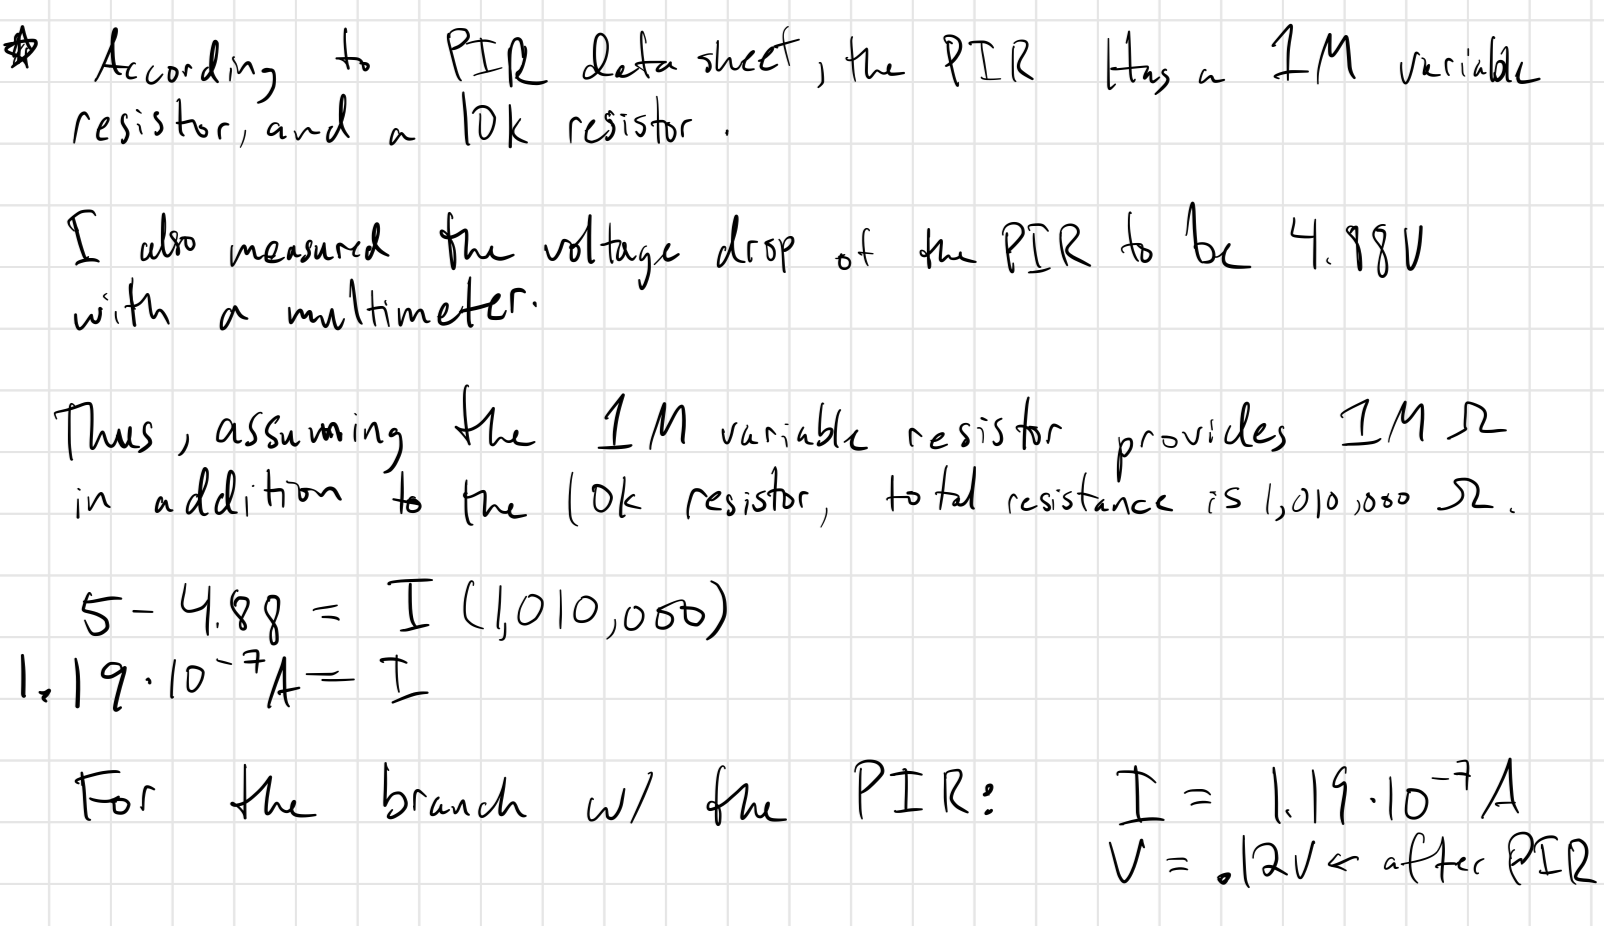 ☆ According to PIR data sheet, the PIR Has a 1M variable
resistor, and a 10k resistor.
I also measured the voltage drop of the PIR to be 4.88V
with a multimeter.
Thus, assuming the 1M variable resistor provides 1M Ω
in addition to the 10k resistor, total resistance is 1,010,000 Ω.
5 - 4.88 = I (1,010,000)
1.19·10⁻⁷A = I
For the branch w/ the PIR: I = 1.19·10⁻⁷A
V = .12V ← after PIR